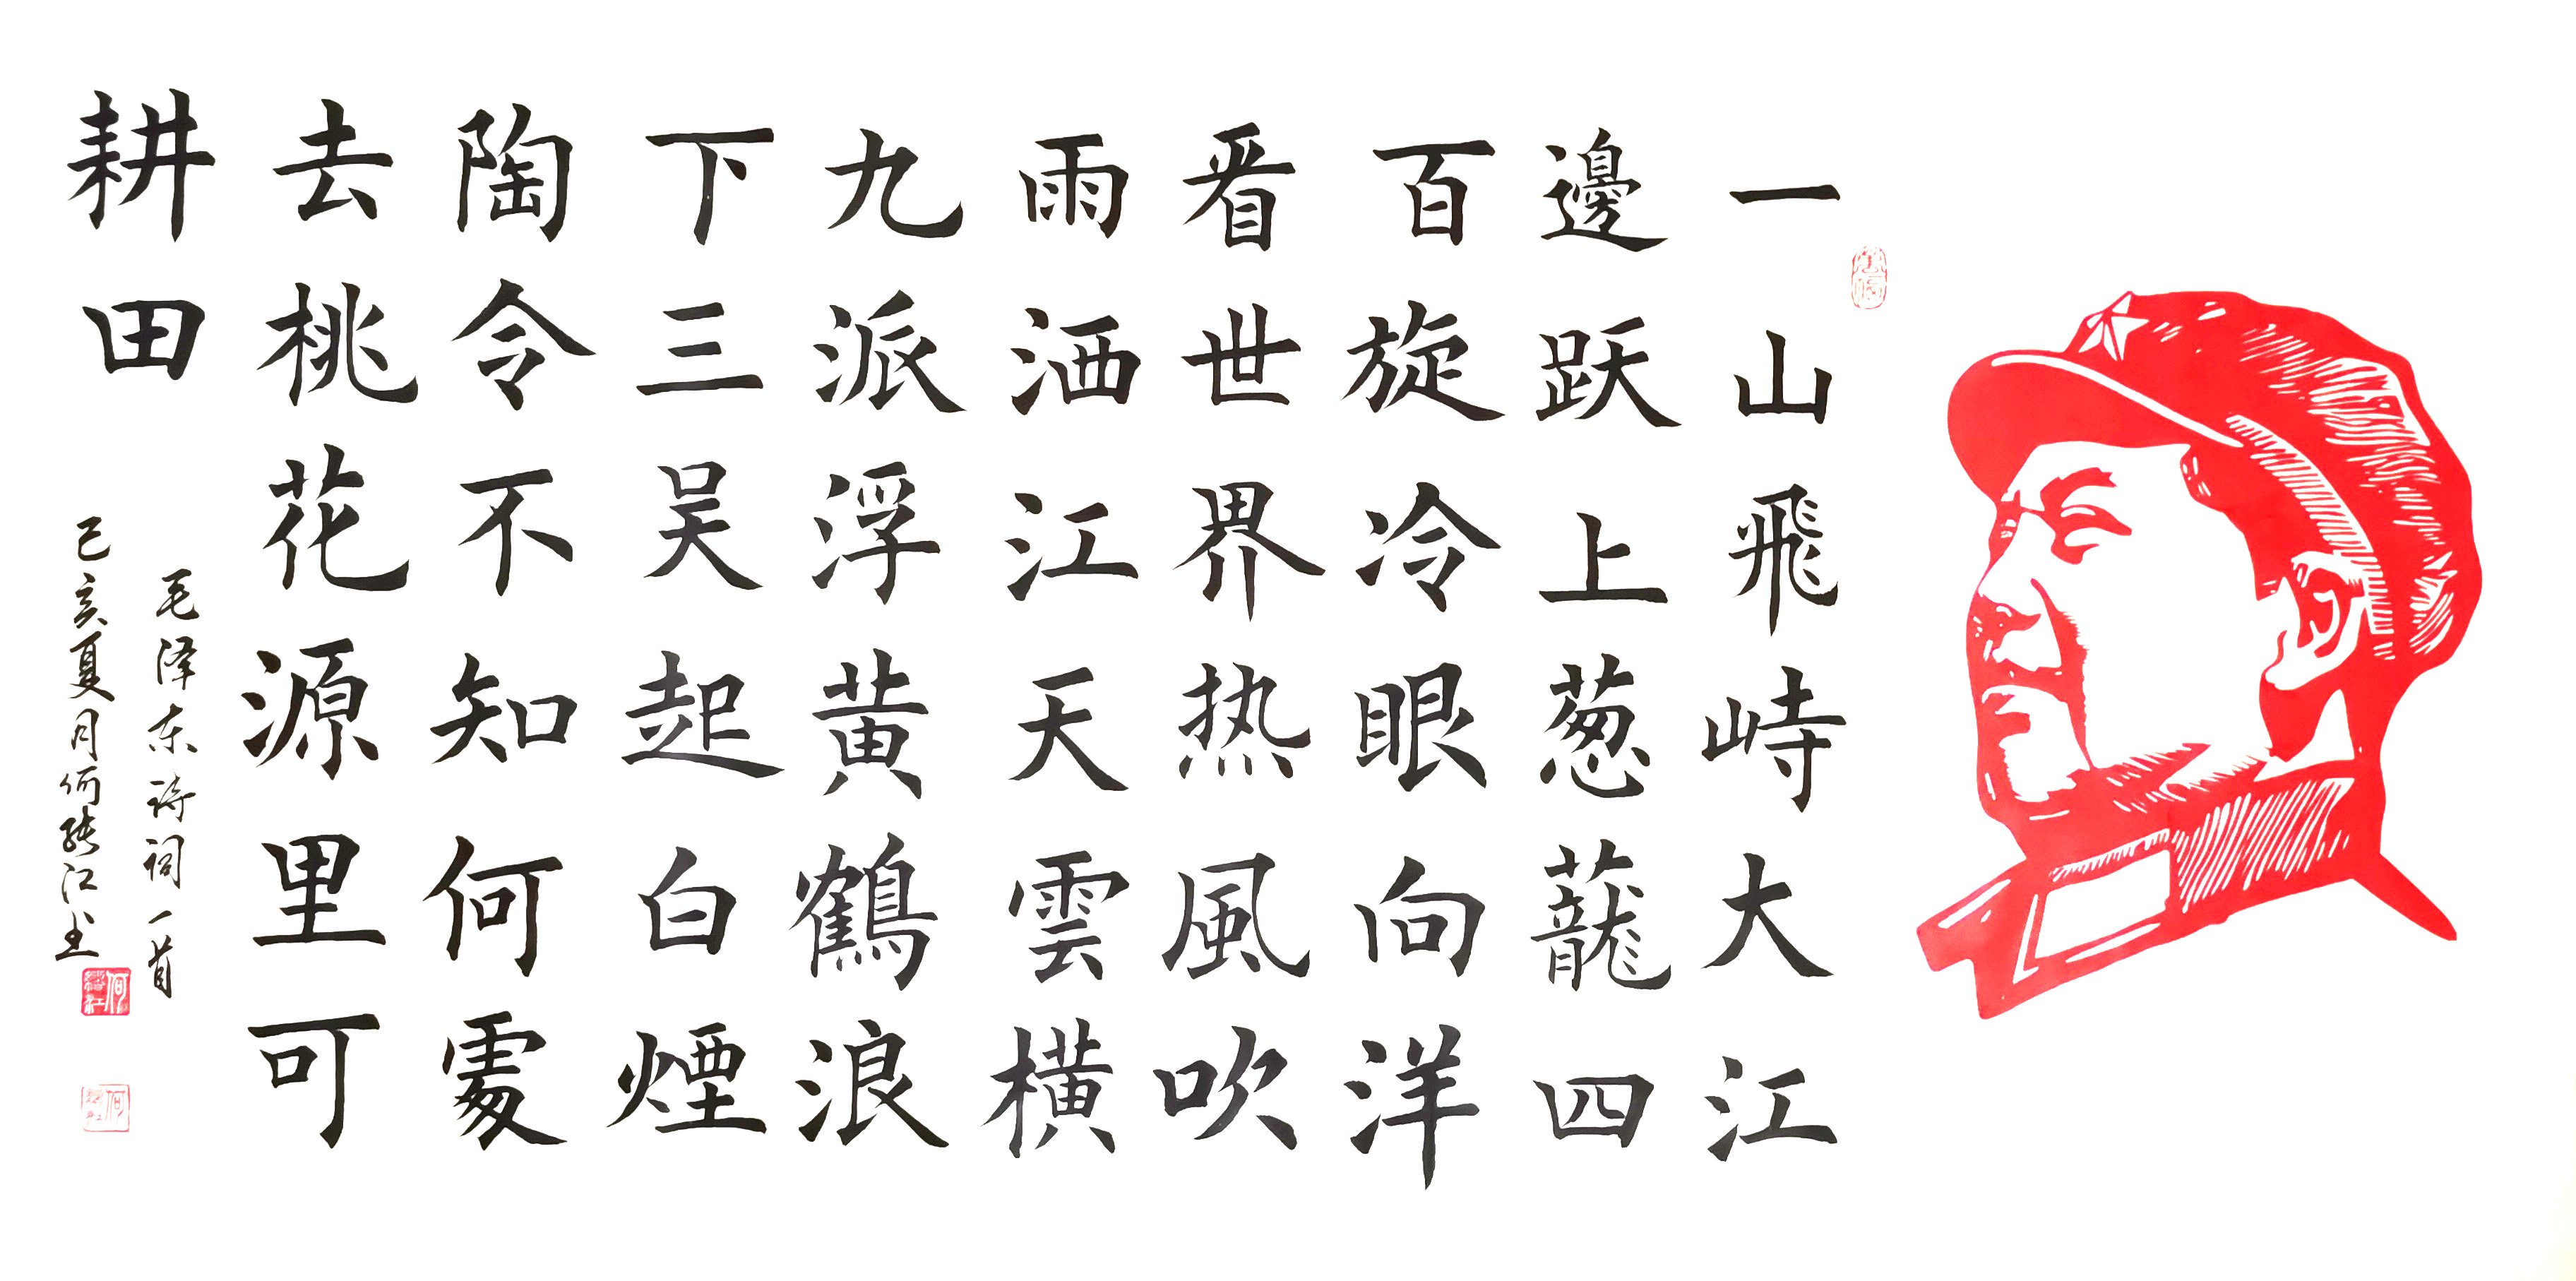 一山飛峙大江
邊跃上葱蘢四
百旋冷眼向洋
看世界热風吹
雨洒江天雲橫
九派浮黄鶴浪
下三吴起白煙
陶令不知何處
去桃花源里可
耕田
毛泽东诗词一首
己亥夏月何绪江书